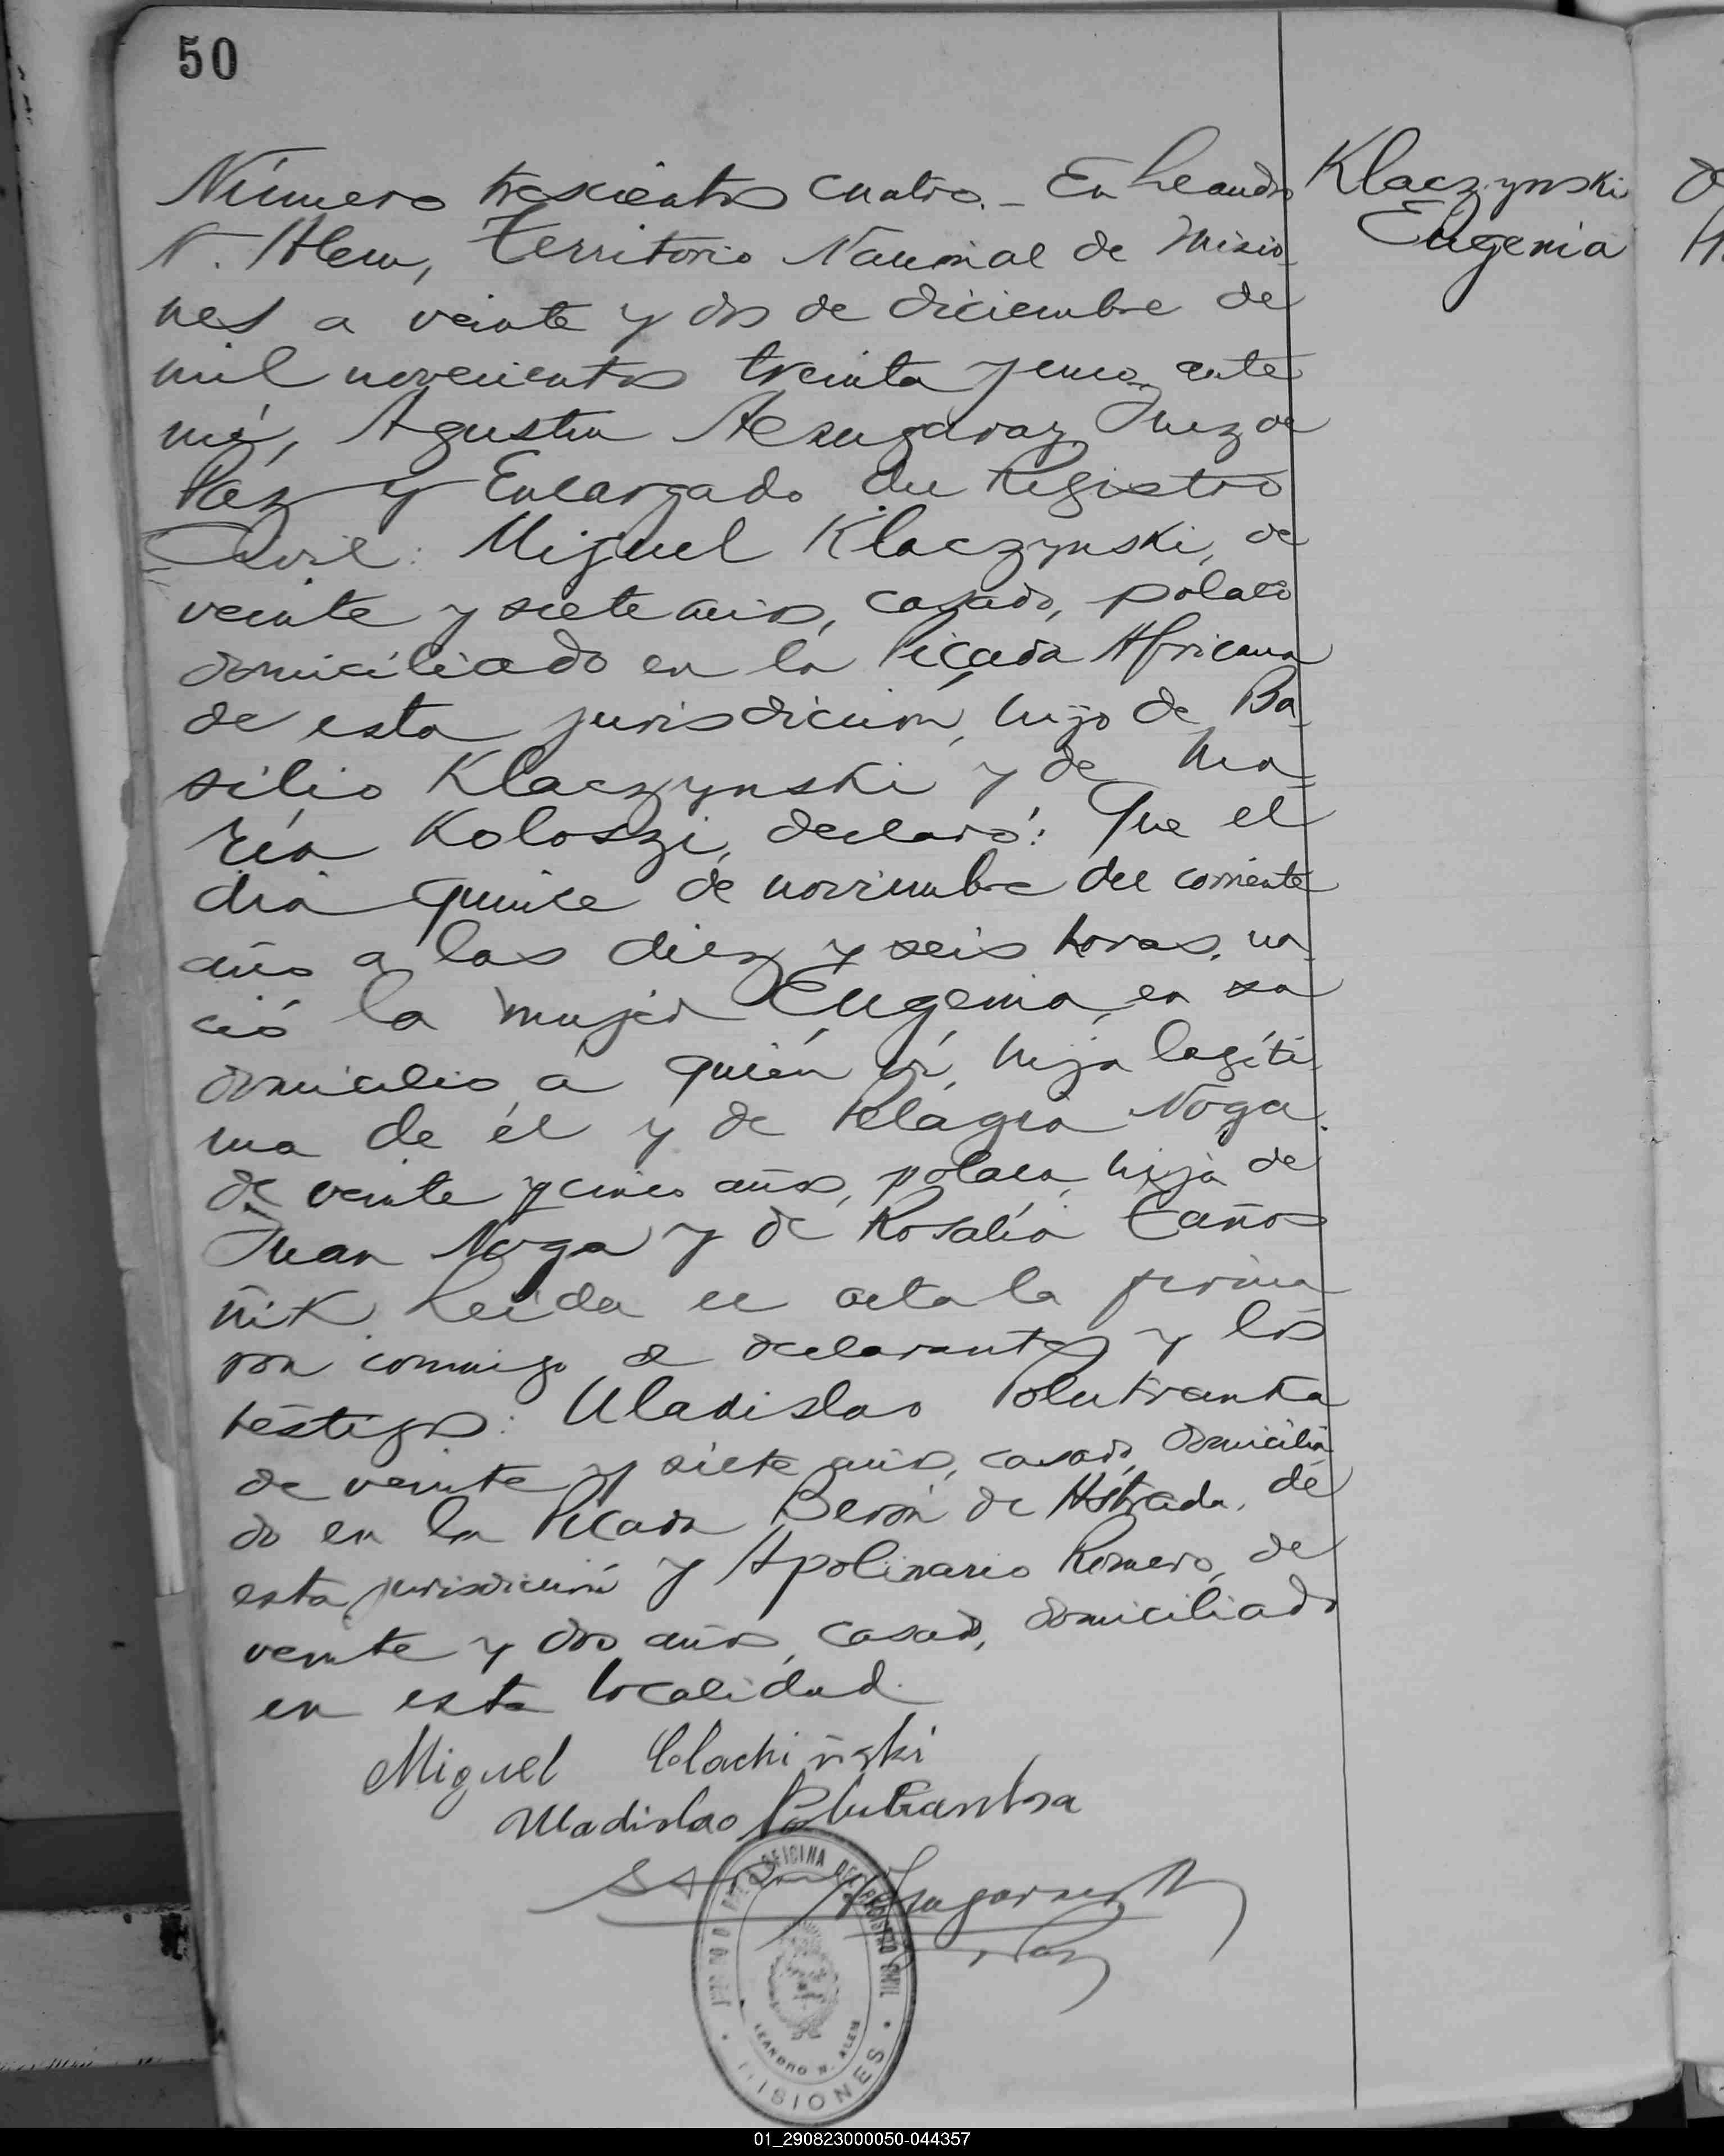 50
Número trescientos cuatro. - En Leandro
N. Alem, Territorio Nacional de Misio-
nes a veinte y dos de diciembre de
mil novecientos treinta y cinco, ante
mí, Agustín Juez de
Paz y Encargado del Registro
Civil: Miguel Klaczynski, de
veinte y siete años, casado, polaco
domiciliado en la Picada Africana
de esta jurisdicción, hijo de Ba-
silio Klaczynski y de Ma-
ría Koloszi, declaró: Que el
día quince de noviembre del corriente
año a las diez y seis horas, na-
ció la mujer Eugenia, en su
domicilio, a quién ví, hija legíti-
ma de él y de Pelagia Noga.
de veinte y cinco años, polaca, hija de
Juan Noga y de Rosalía Caño
ñik. Leída el acta la firma
ron conmigo el declarante y los
testigos: Uladislao Polutranka
de veinte y siete años, casado, domicilia
do en la Picada Berón de Astrada, de
esta jurisdicción y Apolinario Romero, de
veinte y dos años, casado, domiciliado
en esta localidad.
Klaczynski
Eugenia
Miguel Clachiñski
Uladislao Polutranka
OFICINA DEL REGISTRO CIVIL
LEANDRO N. ALEM
MISIONES
01_290823000050-044357